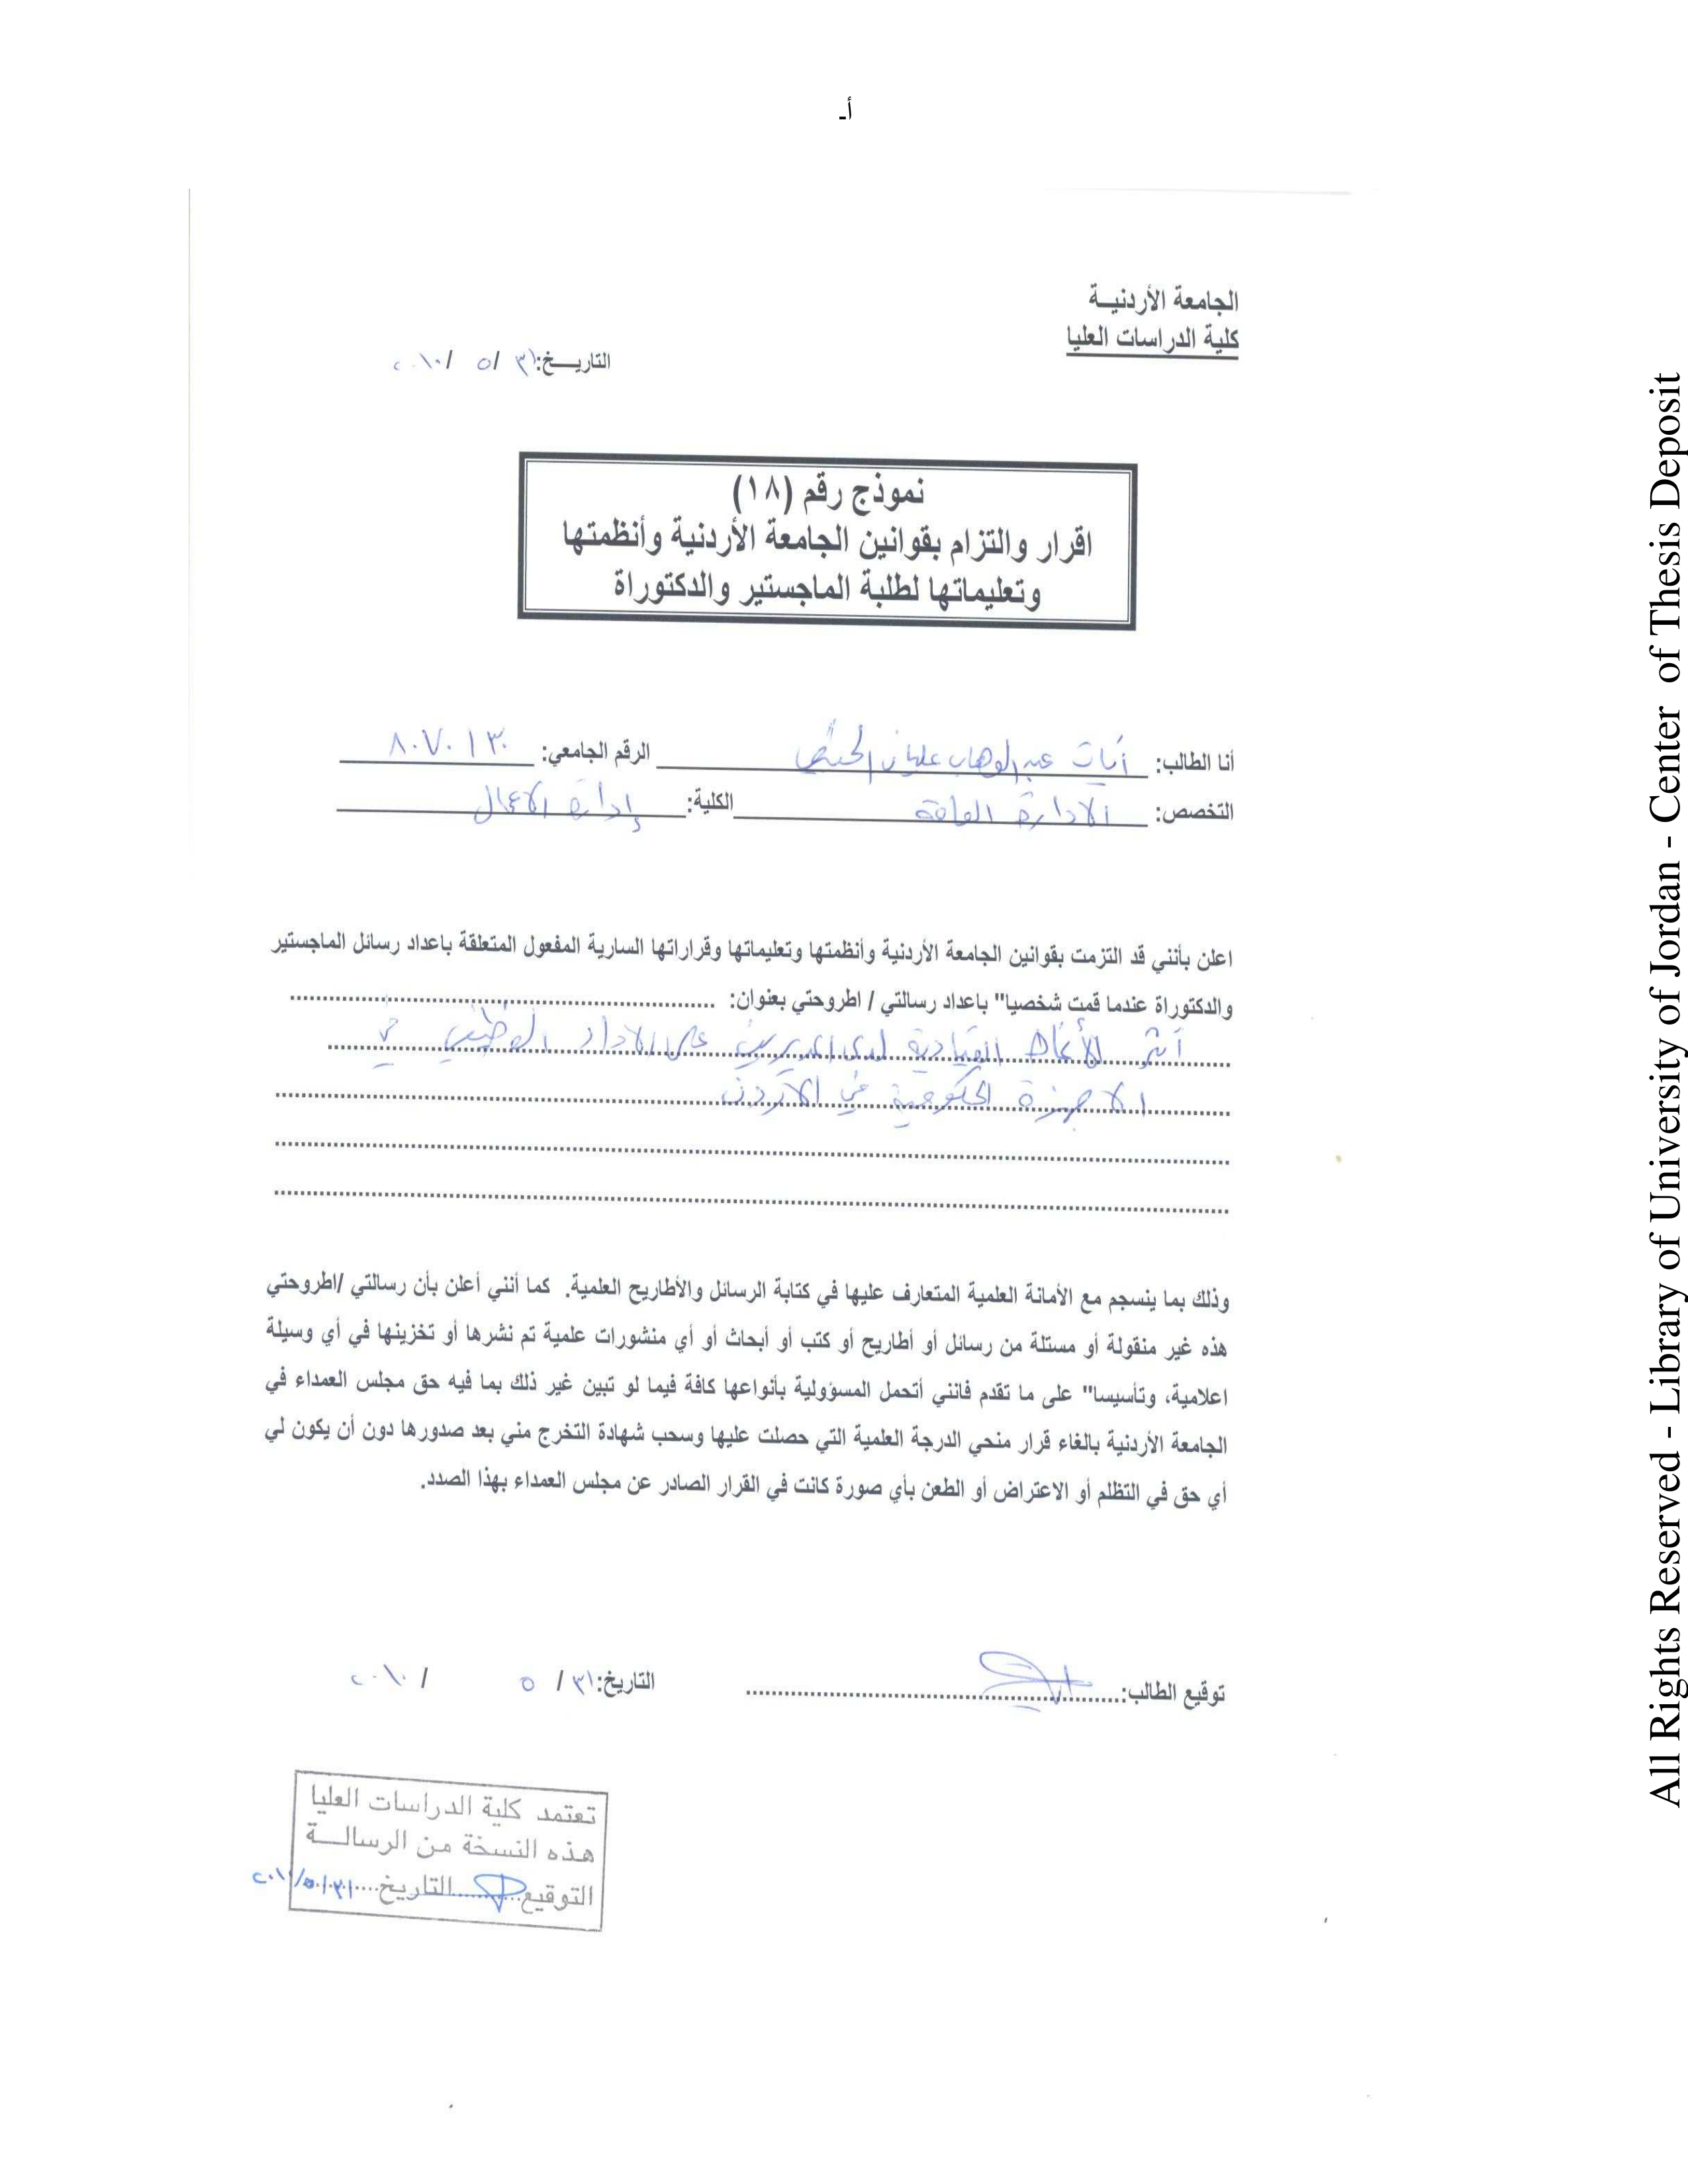 أـ
الجامعة الأردنيــة
كلية الدراسات العليا
التاريــخ: ٣١/ ٥ /٢٠١٠
نموذج رقم (١٨)
اقرار والتزام بقوانين الجامعة الأردنية وأنظمتها
وتعليماتها لطلبة الماجستير والدكتوراة
أنا الطالب: آيات عبدالوهاب الرقم الجامعي: ٨٠٧٠١٣٠
التخصص: الادارة العامة الكلية: إدارة الاعمال
اعلن بأنني قد التزمت بقوانين الجامعة الأردنية وأنظمتها وتعليماتها وقراراتها السارية المفعول المتعلقة باعداد رسائل الماجستير
والدكتوراة عندما قمت شخصيا" باعداد رسالتي / اطروحتي بعنوان: ........................
أثر الأنماط القيادية لدى المديرين على الاداء الوظيفي في
الاجهزة الحكومية في الاردن
وذلك بما ينسجم مع الأمانة العلمية المتعارف عليها في كتابة الرسائل والأطاريح العلمية. كما أنني أعلن بأن رسالتي /اطروحتي
هذه غير منقولة أو مستلة من رسائل أو أطاريح أو كتب أو أبحاث أو أي منشورات علمية تم نشرها أو تخزينها في أي وسيلة
اعلامية، وتأسيسا" على ما تقدم فانني أتحمل المسؤولية بأنواعها كافة فيما لو تبين غير ذلك بما فيه حق مجلس العمداء في
الجامعة الأردنية بالغاء قرار منحي الدرجة العلمية التي حصلت عليها وسحب شهادة التخرج مني بعد صدورها دون أن يكون لي
أي حق في التظلم أو الاعتراض أو الطعن بأي صورة كانت في القرار الصادر عن مجلس العمداء بهذا الصدد.
توقيع الطالب:........................ التاريخ: ٣١/ ٥ / ٢٠١٠
تعتمد كلية الدراسات العليا
هذه النسخة من الرسالــة
التوقيع........التاريخ ٣١/٥/٢٠١٠
All Rights Reserved - Library of University of Jordan - Center of Thesis Deposit